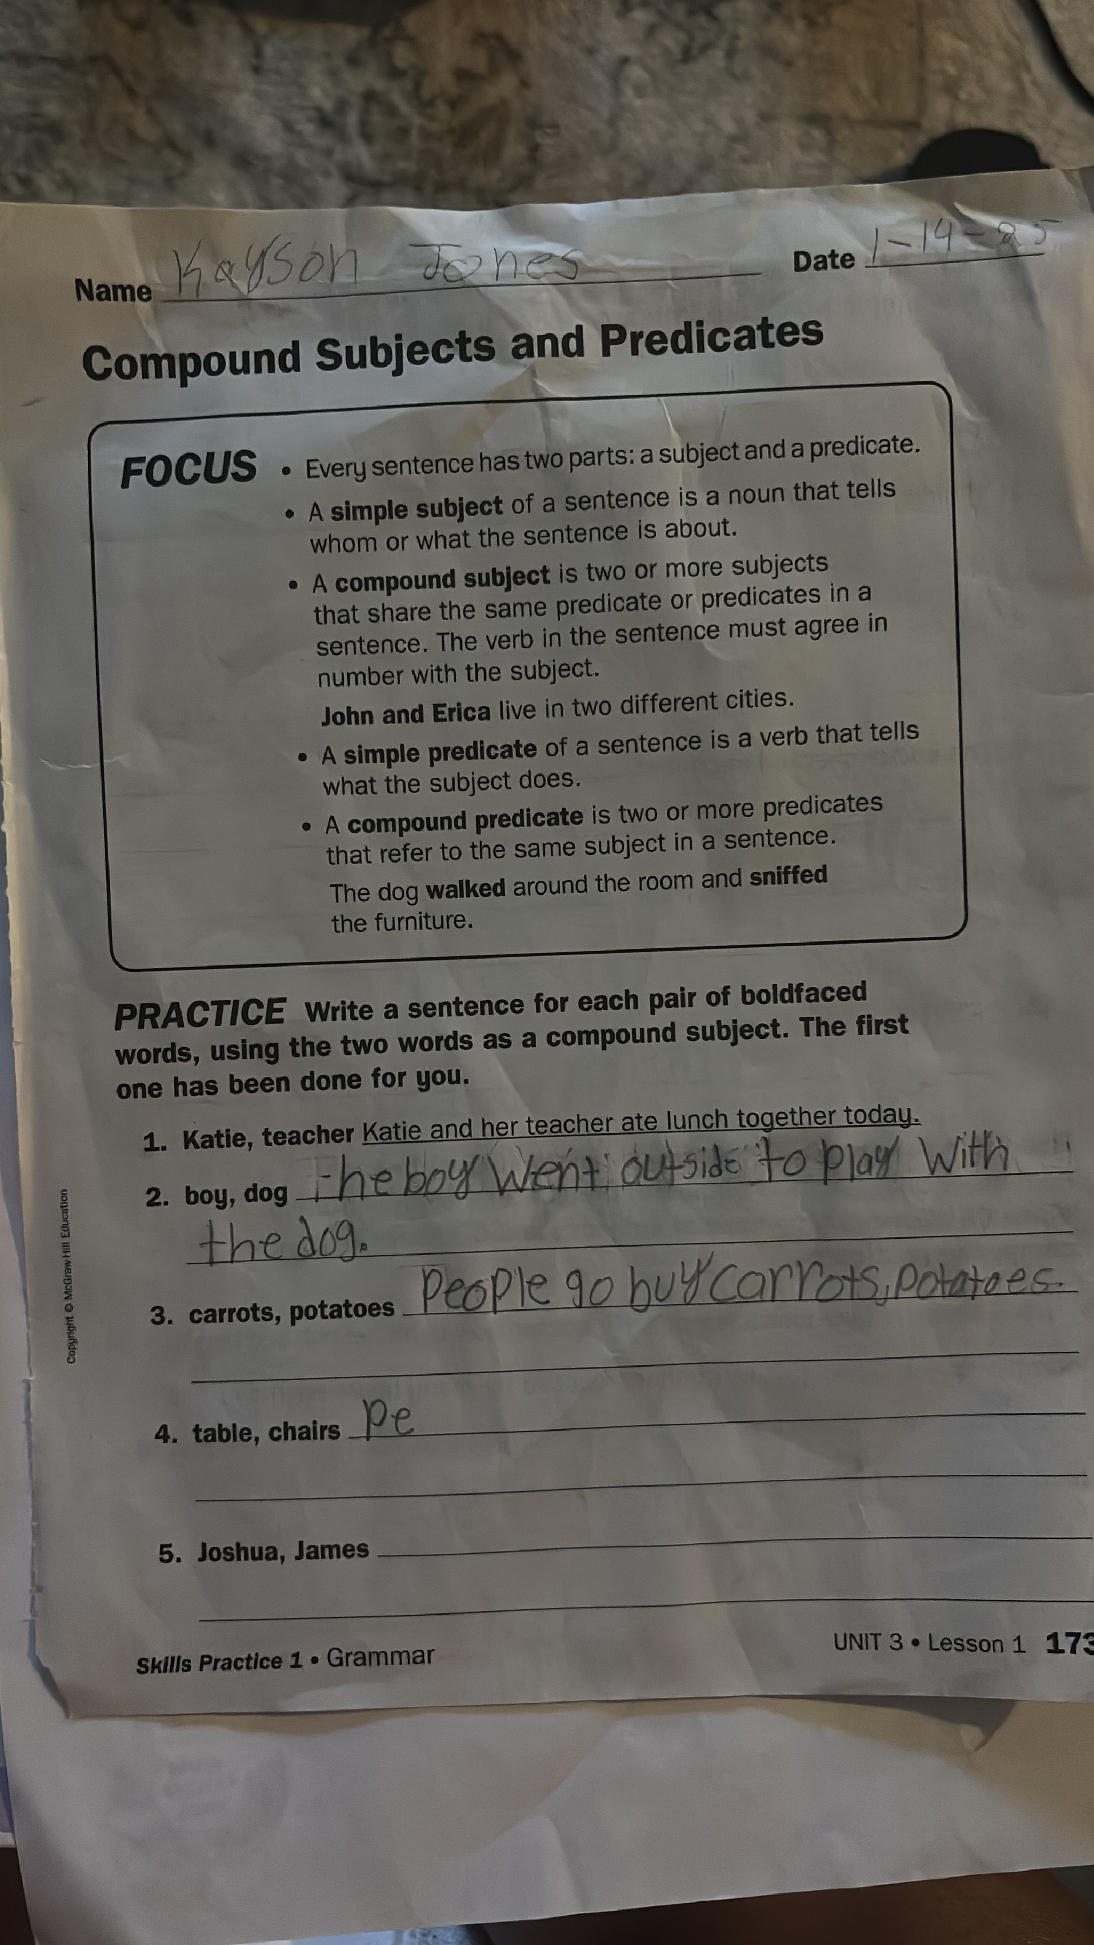 Name Kayson Jones Date 1-14-25
Compound Subjects and Predicates
FOCUS • Every sentence has two parts: a subject and a predicate.
• A simple subject of a sentence is a noun that tells
whom or what the sentence is about.
• A compound subject is two or more subjects
that share the same predicate or predicates in a
sentence. The verb in the sentence must agree in
number with the subject.
John and Erica live in two different cities.
• A simple predicate of a sentence is a verb that tells
what the subject does.
• A compound predicate is two or more predicates
that refer to the same subject in a sentence.
The dog walked around the room and sniffed
the furniture.
PRACTICE Write a sentence for each pair of boldfaced
words, using the two words as a compound subject. The first
one has been done for you.
1. Katie, teacher Katie and her teacher ate lunch together today.
2. boy, dog The boy Went outside to play With
the dog.
3. carrots, potatoes People go buy carrots, potatoes.
4. table, chairs pe
5. Joshua, James
Skills Practice 1 • Grammar UNIT 3 • Lesson 1 173
Copyright © McGraw-Hill Education